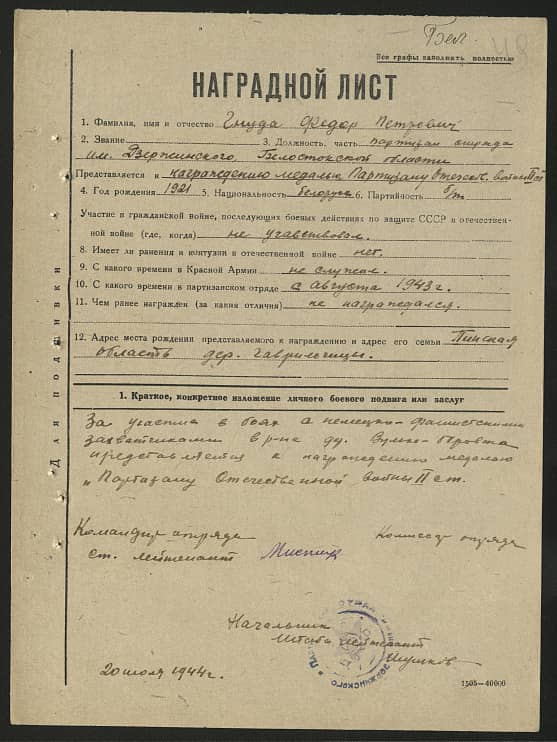 Бел.
49
Все графы заполнять полностью
НАГРАДНОЙ ЛИСТ
1. Фамилия, имя и отчество Гнуда Федор Петрович
2. Звание 3. Должность, часть партизан отряда
им. Дзержинского, Белостокской области
Представляется к награждению медалью Партизану Отечеств. войны II ст.
4. Год рождения 1921 5. Национальность белорус 6. Партийность б/п.
Участие в гражданской войне, последующих боевых действиях по защите СССР и отечествен-
ной войне (где, когда) не участвовал.
8. Имеет ли ранения и контузии в отечественной войне нет.
9. С какого времени в Красной Армии не служил.
10. С какого времени в партизанском отряде с августа 1943 г.
11. Чем ранее награжден (за какия отличия) не награждался.
12. Адрес места рождения представляемого к награждению и адрес его семьи Пинская
область дер. Гаврильчицы.
Для подшивки
1. Краткое, конкретное изложение личного боевого подвига или заслуг
За участие в боях с немецко-фашистскими
захватчиками в р-не
представляется к награждению медалью
„Партизану Отечественной войны II ст.
Командир отряда Комиссар отряда
ст. лейтенант
Начальник
Штаба лейтенант
Шумков
20 июля 1944 г.
1505—40000